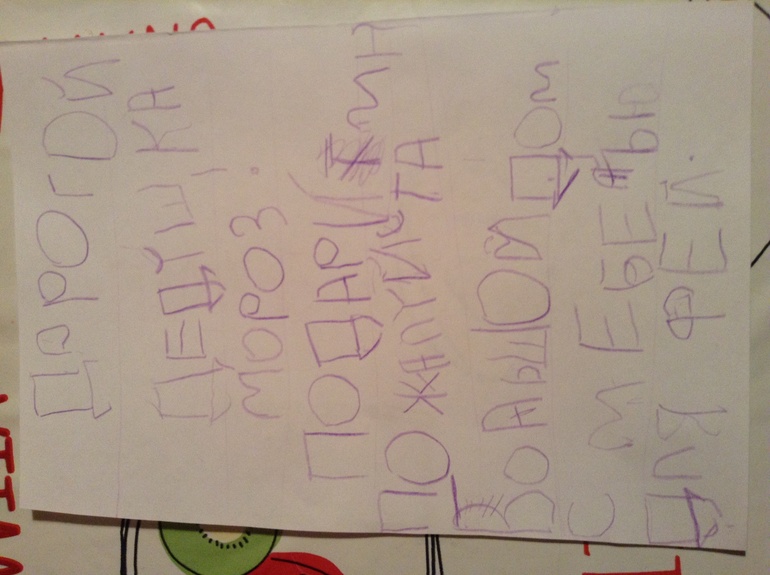 ДОРОГОЙ
ДЕДУШКА
МОРОЗ.
ПОДАРИ МН
ПОЖАЛУЙСТА
БОЛЬШОЙ ДОМ
С МЕБЕЛЬЮ
ДЛЯ ФЕЙ.